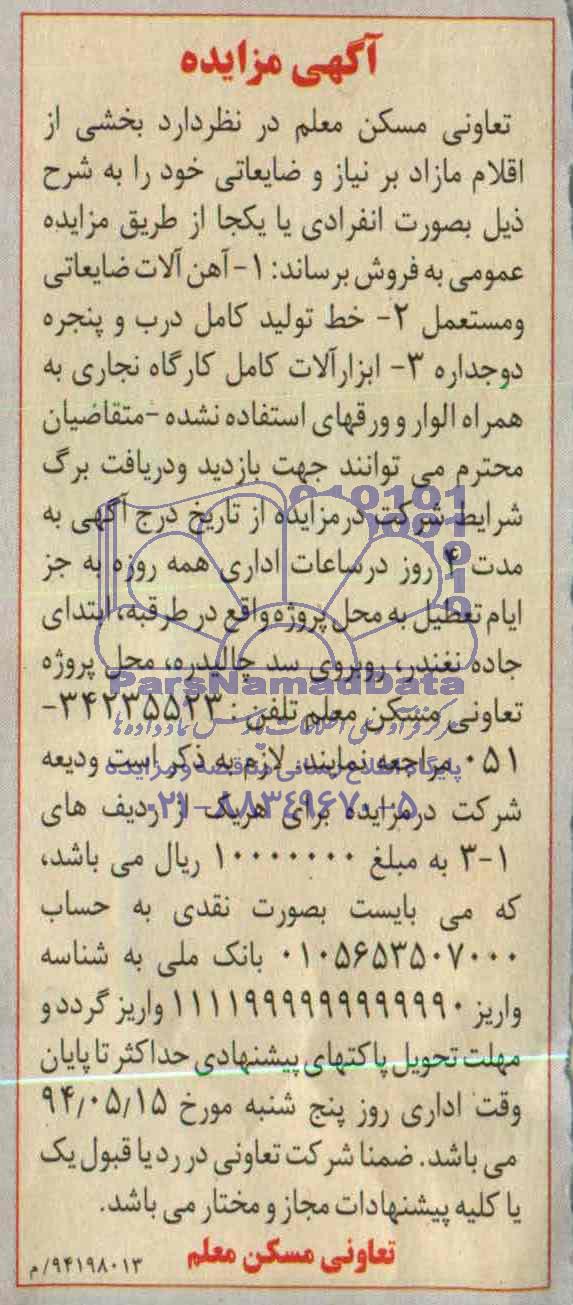 آگهی مزایده
تعاونی مسکن معلم در نظردارد بخشی از
اقلام مازاد بر نیاز و ضایعاتی خود را به شرح
ذیل بصورت انفرادی یا یکجا از طریق مزایده
عمومی به فروش برساند: ۱- آهن آلات ضایعاتی
ومستعمل ۲- خط تولید کامل درب و پنجره
دوجداره ۳- ابزارآلات کامل کارگاه نجاری به
همراه الوار و ورقهای استفاده نشده -متقاضیان
محترم می توانند جهت بازدید ودریافت برگ
شرایط شرکت درمزایده از تاریخ درج آگهی به
مدت ۴ روز درساعات اداری همه روزه به جز
ایام تعطیل به محل پروژه واقع در طرقبه، ابتدای
جاده نغندر، روبروی سد چالیدره، محل پروژه
ParsNamadData
تعاونی مسکن معلم تلفن: ۳۴۲۳۵۵۲۳-
۰۵۱ مراجعه نمایند. لازم به ذکر است ودیعه
پایگاه اطلاع رسانی مناقصه و مزایده
شرکت درمزایده برای هریک از ردیف های
۰۲۱-۸۸۳۴۹۶۷۰-۵
۳-۱ به مبلغ ۱۰۰۰۰۰۰۰ ریال می باشد،
که می بایست بصورت نقدی به حساب
۰۱۰۵۶۵۳۵۰۷۰۰۰ بانک ملی به شناسه
واریز ۱۱۱۱۹۹۹۹۹۹۹۹۹۹۹۰ واریز گردد و
مهلت تحویل پاکتهای پیشنهادی حداکثر تا پایان
وقت اداری روز پنج شنبه مورخ ۹۴/۰۵/۱۵
می باشد. ضمنا شرکت تعاونی در رد یا قبول یک
یا کلیه پیشنهادات مجاز و مختار می باشد.
تعاونی مسکن معلم
۹۴۱۹۸۰۱۳/م